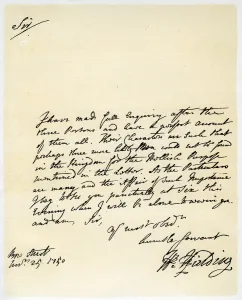 Sir
I have made full Enquiry after the
three Persons and have a perfect account
of them all. Their Characters are such that
perhaps three more likely Men could not be found
in the Kingdom for the Hellish Purpose
mentioned in the Letter. As the Particulars
are many and the Affair of such Importance
I beg to see you punctually at Six this
evening when I will be alone to receive you
and am, Sir,
Yr most Obedt
humble Servant
Hy Ffielding
Bow Street
Novr 25 1750